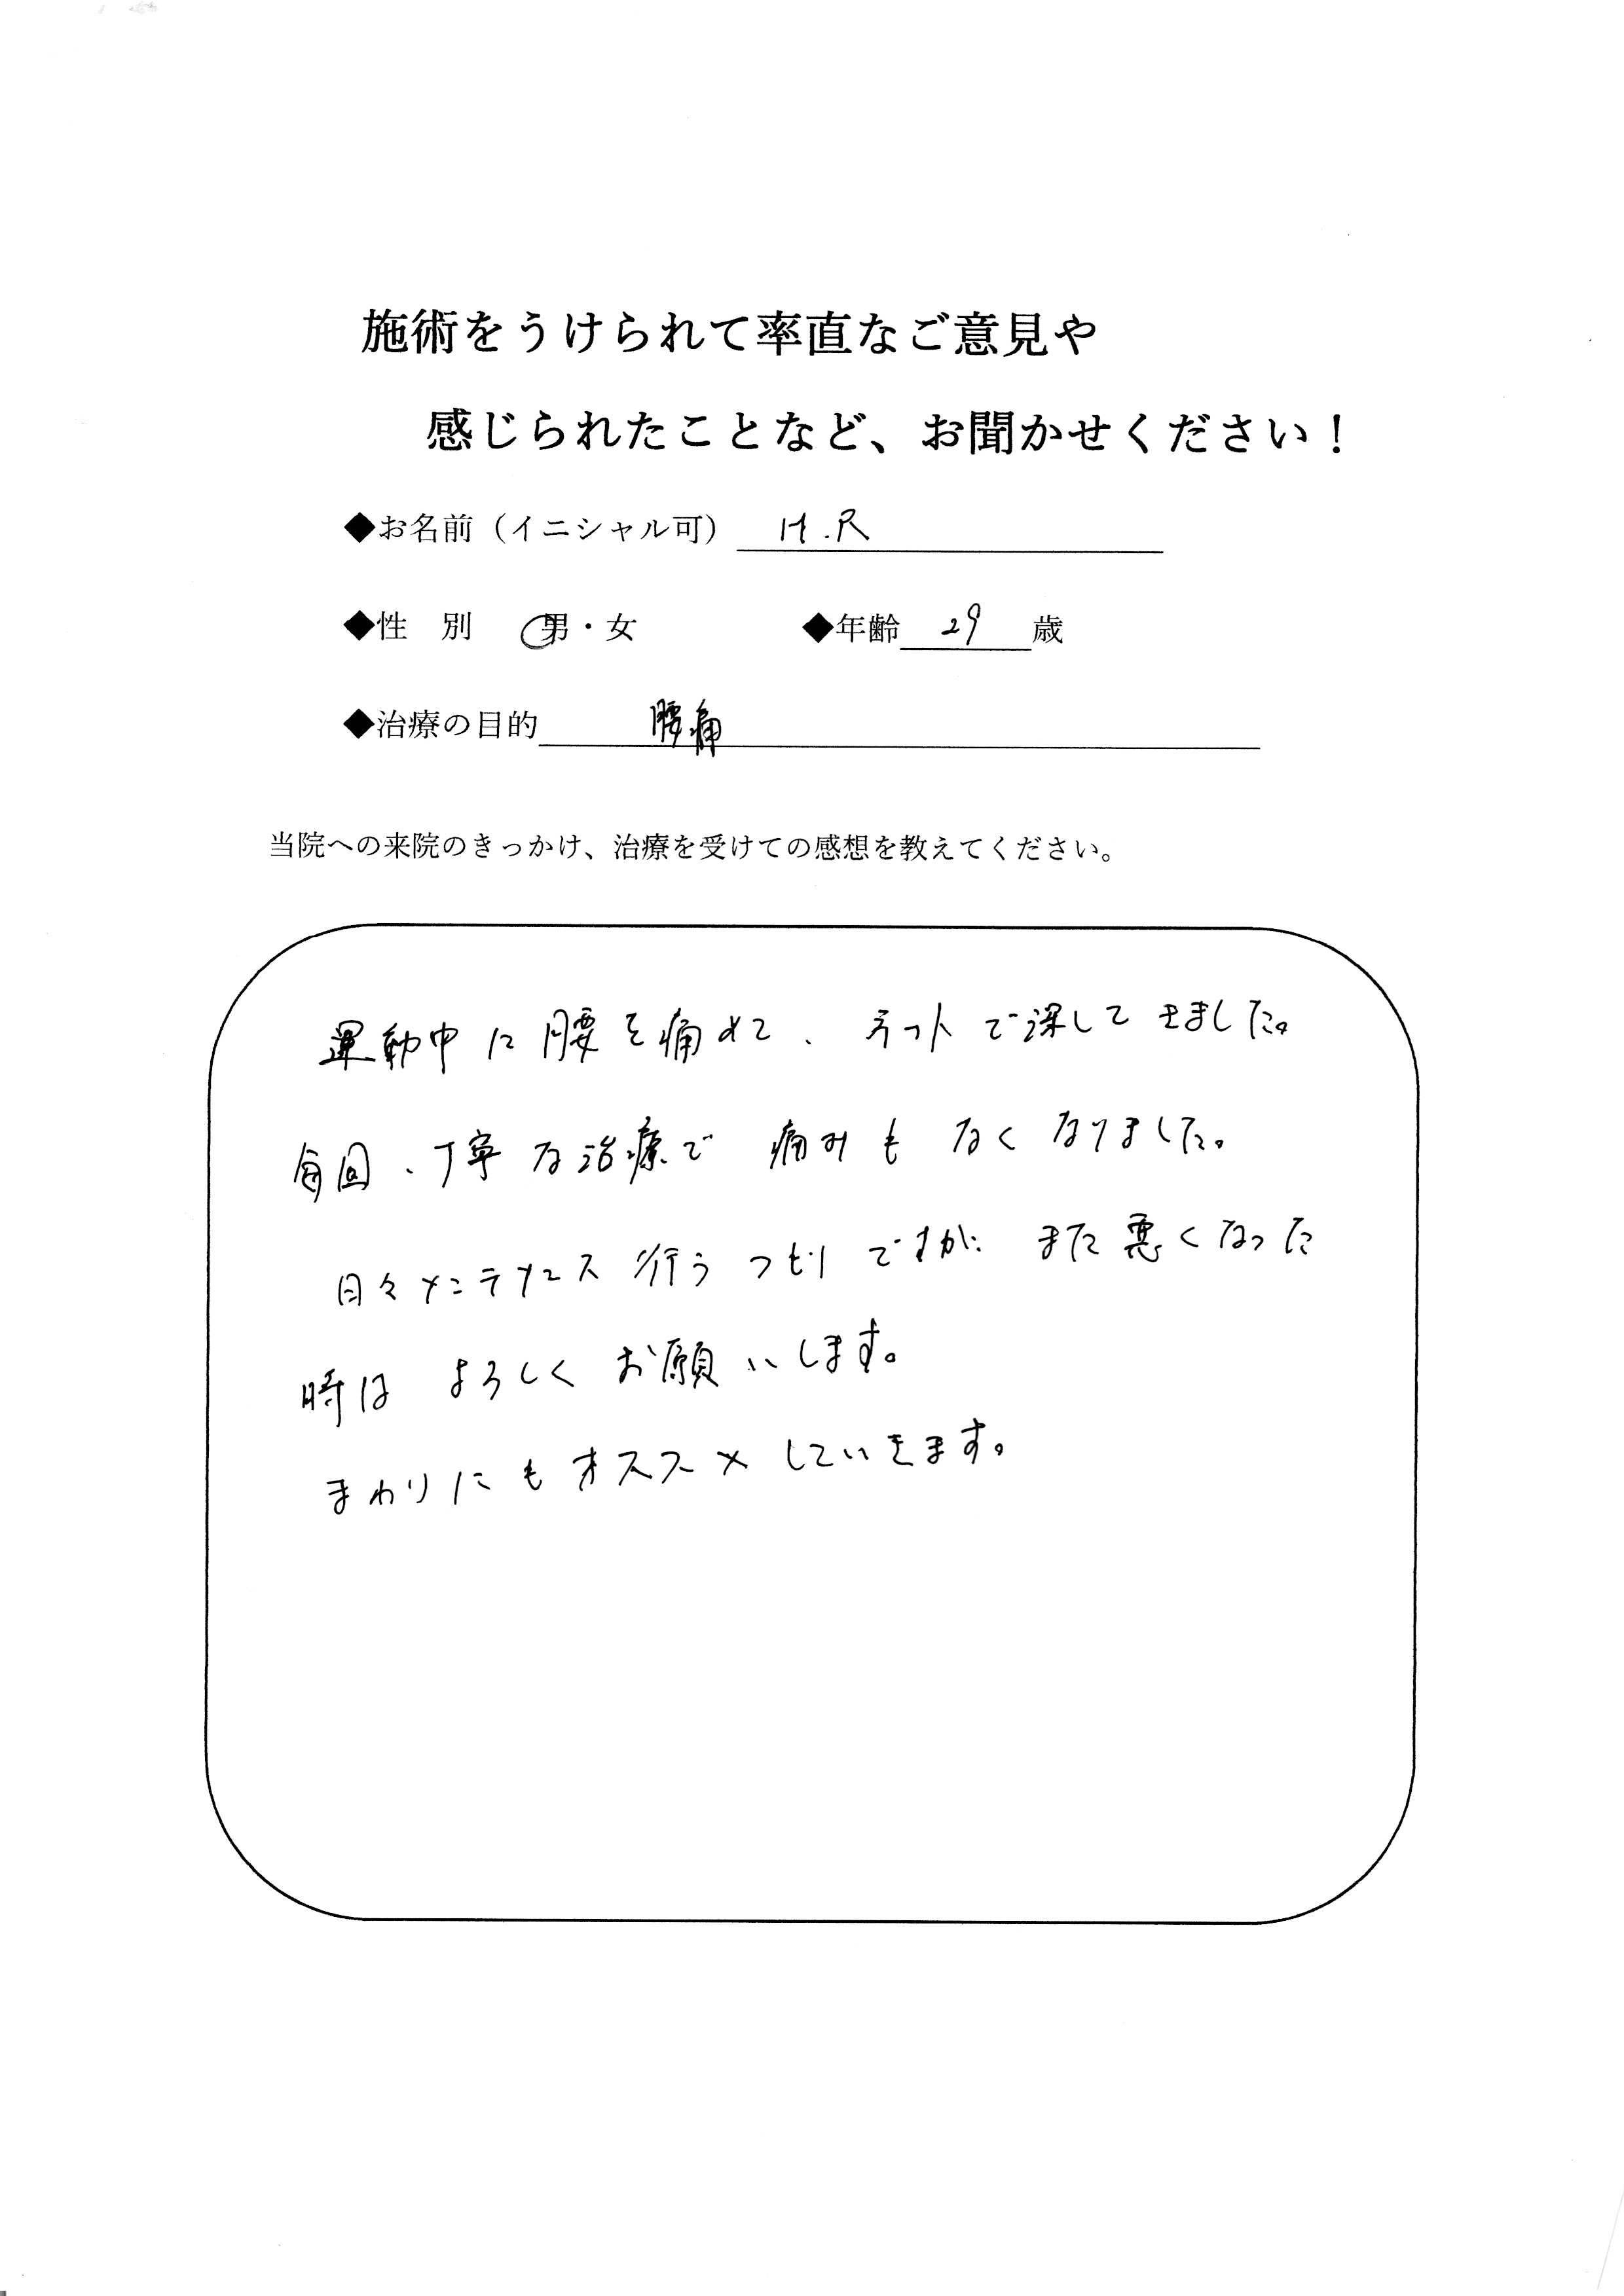 施術をうけられて率直なご意見や
感じられたことなど、お聞かせください！
◆お名前（イニシャル可） H.R
◆性　別　男・女　◆年齢 29 歳
◆治療の目的 腰痛
当院への来院のきっかけ、治療を受けての感想を教えてください。
運動中に腰を痛めて、ネットで探してきました。
毎回、丁寧な治療で 痛みも なくなりました。
日々メンテナンス 行う つもり ですが、また悪くなった
時は よろしく お願いします。
まわりにも オススメ していきます。